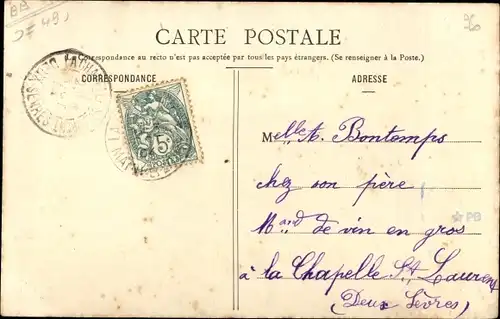 96
CARTE POSTALE
(La Correspondance au recto n'est pas acceptée par tous les pays étrangers. (Se renseigner à la Poste.)
CORRESPONDANCE
ADRESSE
5c
Melle A. Bontemps
chez son père
Mand de vin en gros
à la Chapelle St Laurent
(Deux Sèvres)
PB